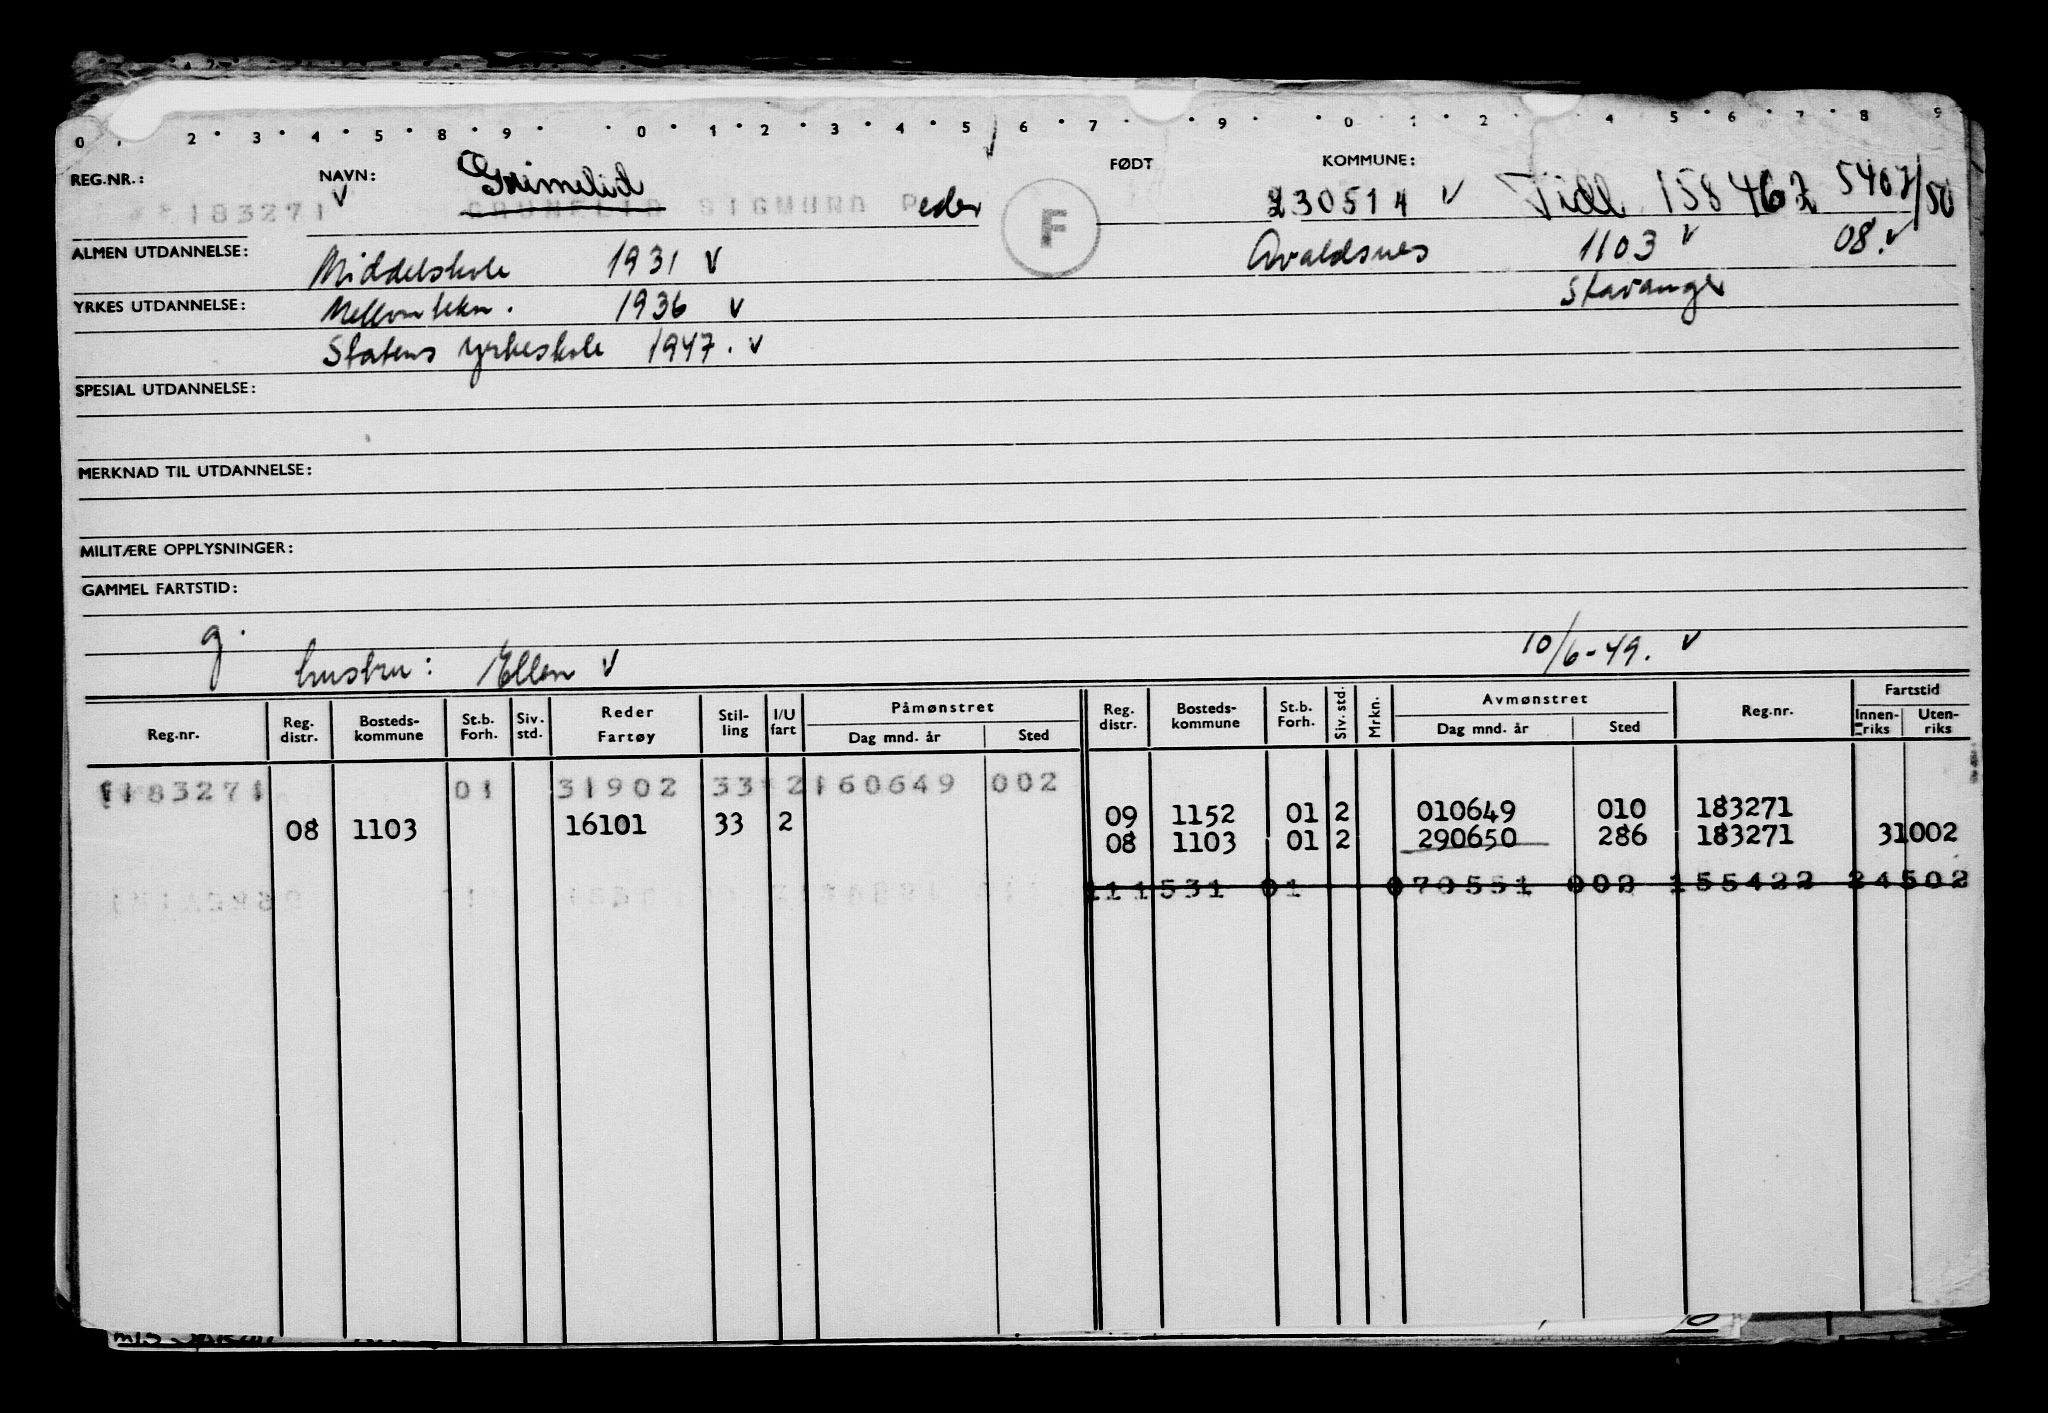 0 . 2 . 3 . 4 . 5 . 8 . 9 . . 0 . 1 . 2 . 3 . 4 . 5 . 6 . 7 . . 9 . . 0 . 1 . 2 . 4 . 5 . 6 . 7 . 8 . 9
REG.NR.: NAVN: Grimelid FØDT KOMMUNE:
183271 V SIGMUND Peder F 230514 V Tidl 158467 5407/50
ALMEN UTDANNELSE: Middelskole 1931 V Avaldsnes 1103 V 08. V
YRKES UTDANNELSE: Mellomtekn. 1936 V Stavanger
Statens yrkeskole 1947. V
SPESIAL UTDANNELSE:
MERKNAD TIL UTDANNELSE:
MILITÆRE OPPLYSNINGER:
GAMMEL FARTSTID:
g.
hustru: Ellen V 10/6-49. V
Reg.nr. Reg. distr. Bosteds-kommune St.b. Forh. Siv. std. Reder Fartøy Stil-ling I/U fart Påmønstret Dag mnd. år Sted Reg. distr. Bosteds-kommune St.b. Forh. Siv. std. Mrkn. Avmønstret Dag mnd. år Sted Reg.nr. Fartstid Innen-riks Uten-riks
183271 01 31902 33 2 160649 002
09 1152 01 2 010649 010 183271
08 1103 16101 33 2
08 1103 01 2 290650 286 183271 31002
111531 01 070551 002 155422 24502